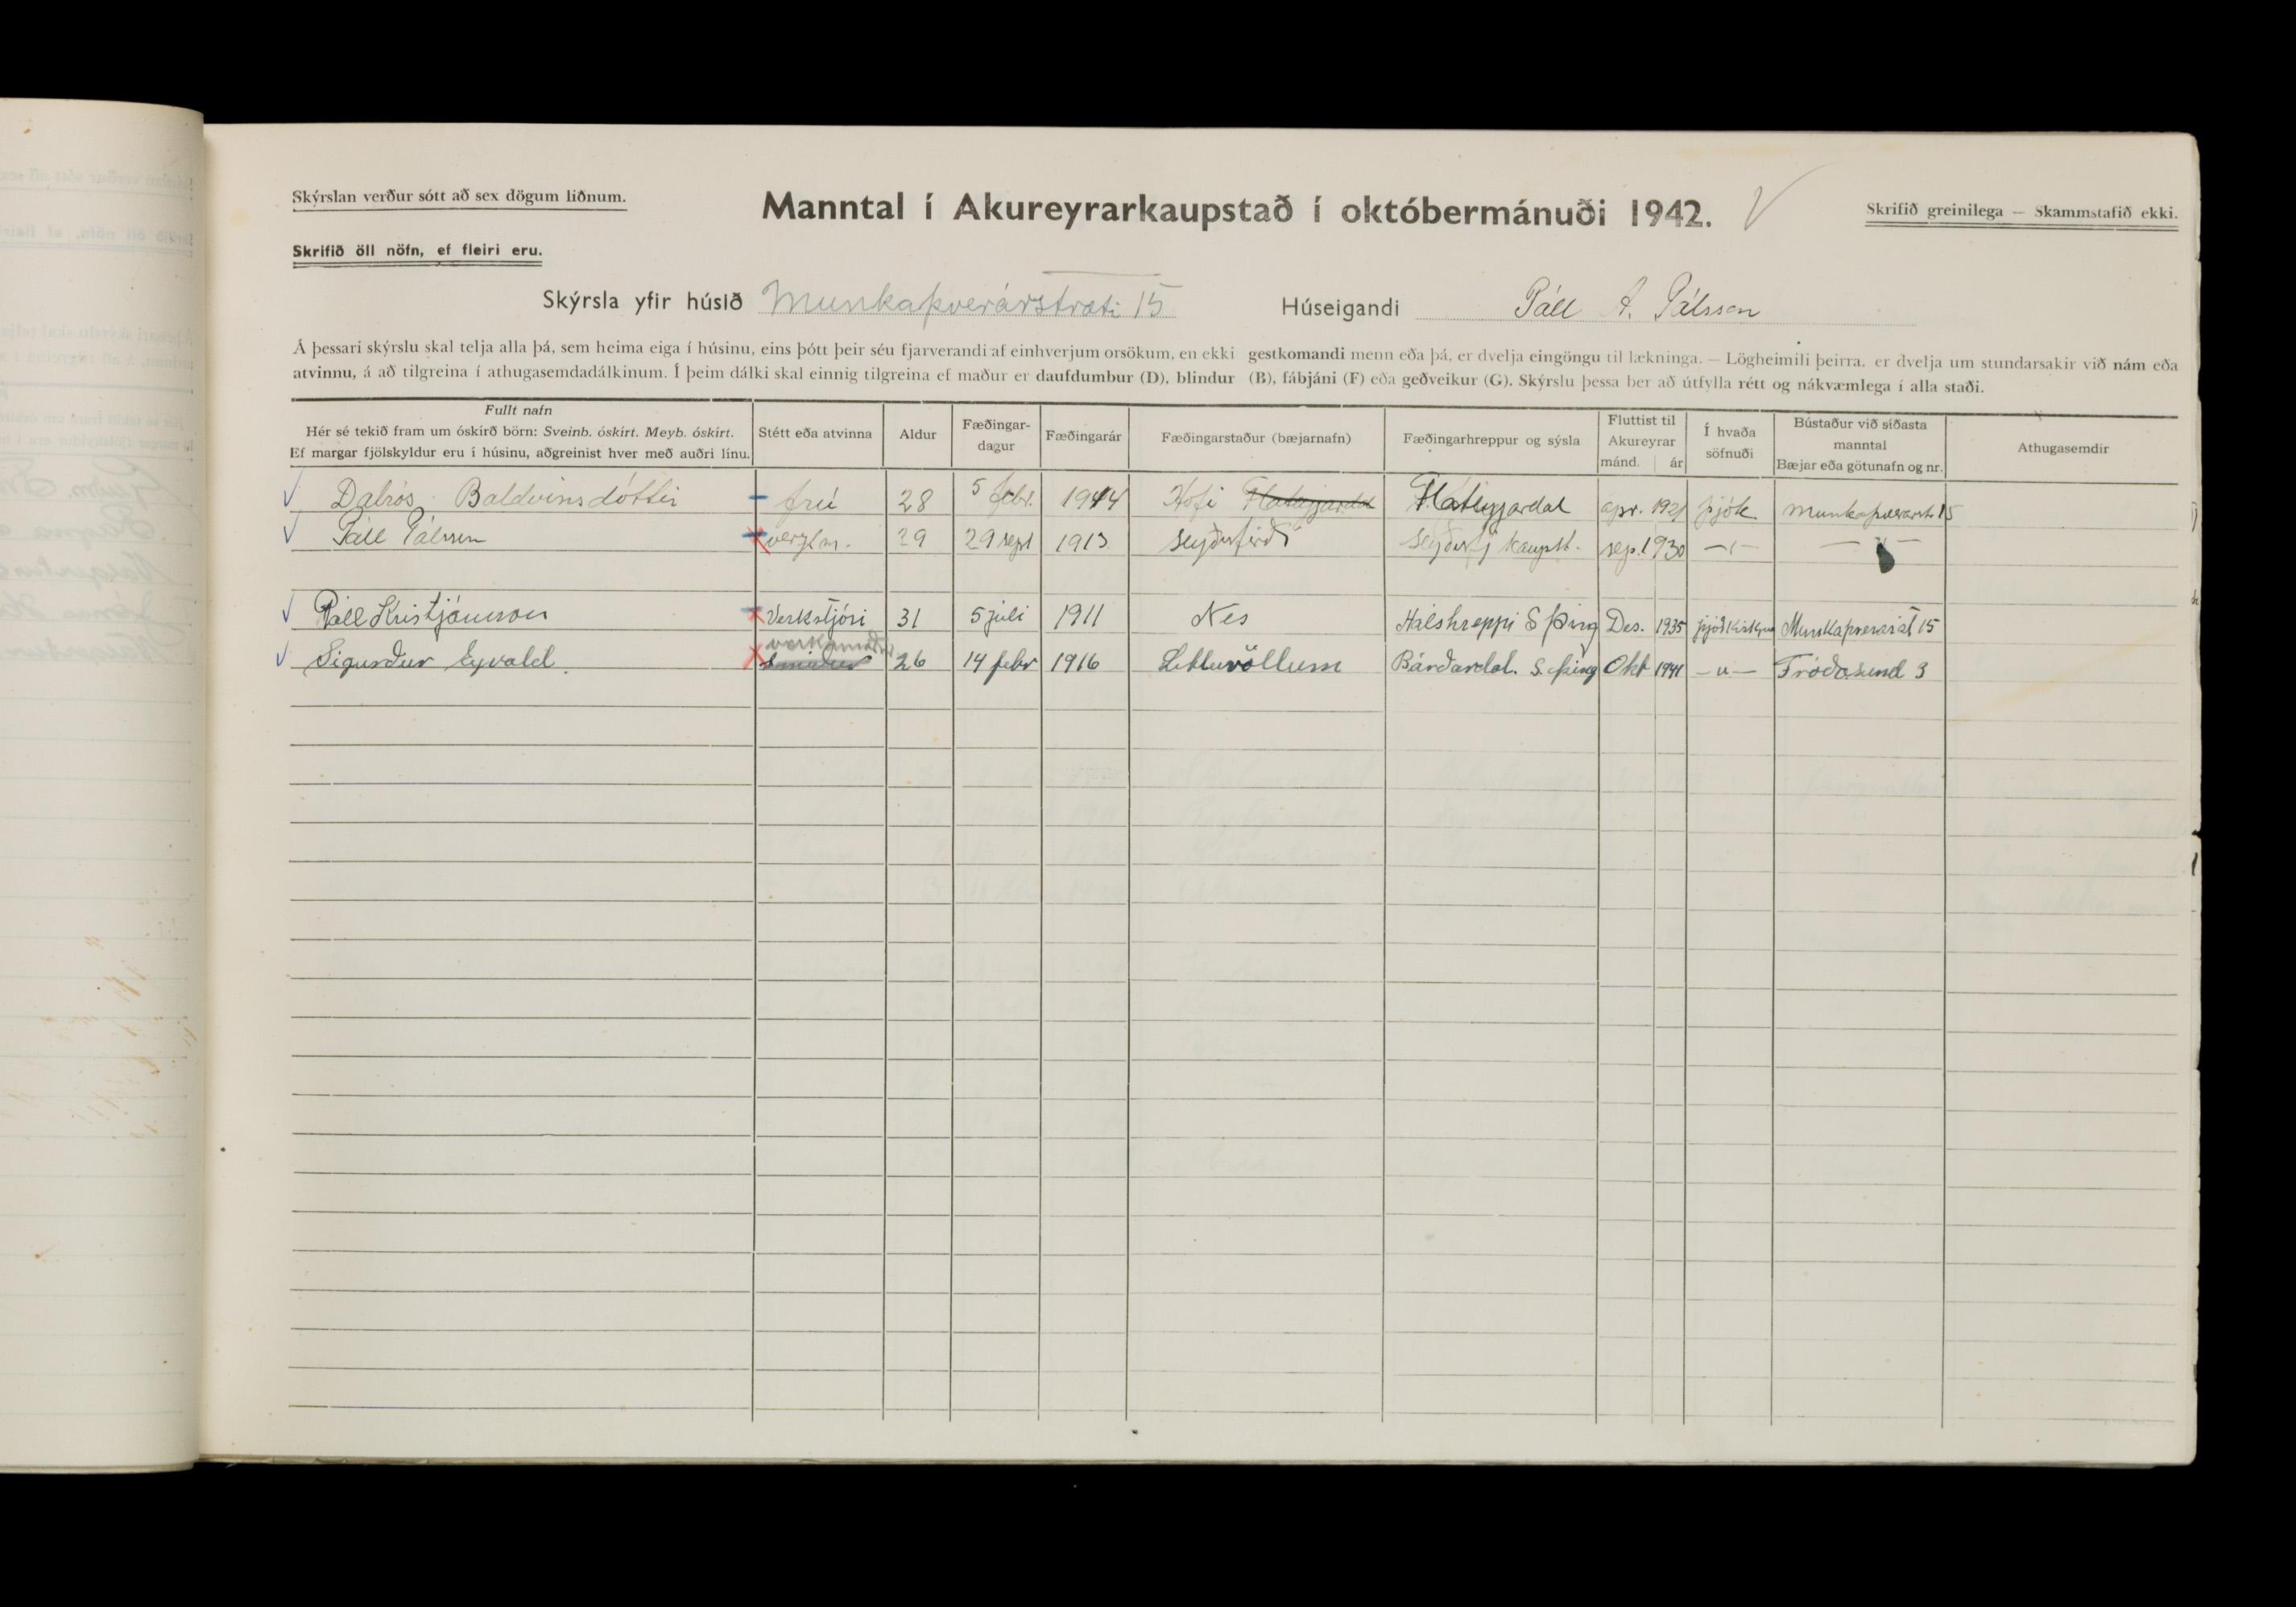 Skýrslan verður sótt að sex dögum liðnum.
Manntal í Akureyrarkaupstað í októbermánuði 1942. V
Skrifið greinilega — Skammstafið ekki.
Skrifið öll nöfn, ef fleiri eru.
Skýrsla yfir húsið Munkaþverárstræti 15 Húseigandi Páll A. Pálsson
Á þessari skýrslu skal telja alla þá, sem heima eiga í húsinu, eins þótt þeir séu fjarverandi af einhverjum orsökum, en ekki gestkomandi menn eða þá, er dvelja eingöngu til lækninga. — Lögheimili þeirra, er dvelja um stundarsakir við nám eða
atvinnu, á að tilgreina í athugasemdadálkinum. Í þeim dálki skal einnig tilgreina ef maður er daufdumbur (D), blindur (B), fábjáni (F) eða geðveikur (G). Skýrslu þessa ber að útfylla rétt og nákvæmlega í alla staði.
Fullt nafn
Hér sé tekið fram um óskírð börn: Sveinb. óskírt. Meyb. óskírt.
Ef margar fjölskyldur eru í húsinu, aðgreinist hver með auðri línu.
Stétt eða atvinna
Aldur
Fæðingar-
dagur
Fæðingarár
Fæðingarstaður (bæjarnafn)
Fæðingarhreppur og sýsla
Fluttist til
Akureyrar
mánd. ár
Í hvaða
söfnuði
Bústaður við síðasta
manntal
Bæjar eða götunafn og nr.
Athugasemdir
Dalrós Baldvinsdóttir frú 28 5 febr. 1914 Hofi Flateyjardal Flateyjardal apr. 1921 þjóðk Munkaþverárstr 15
Páll Pálsson verzlm. 29 29 sept 1913 Seyðisfirði Seyðisfj kaupst. sep. 1930 —"— —"—
Páll Kristjánsson Verkstjóri 31 5 júlí 1911 Nes Hálshreppi S þing Des. 1935 þjóðkirkjan Munkaþverarst 15
verkamaður
Sigurður Eyvald. smiður 26 14 febr 1916 Litluvöllum Bárðardal. S. þing Okt 1941 —"— Fróðasund 3